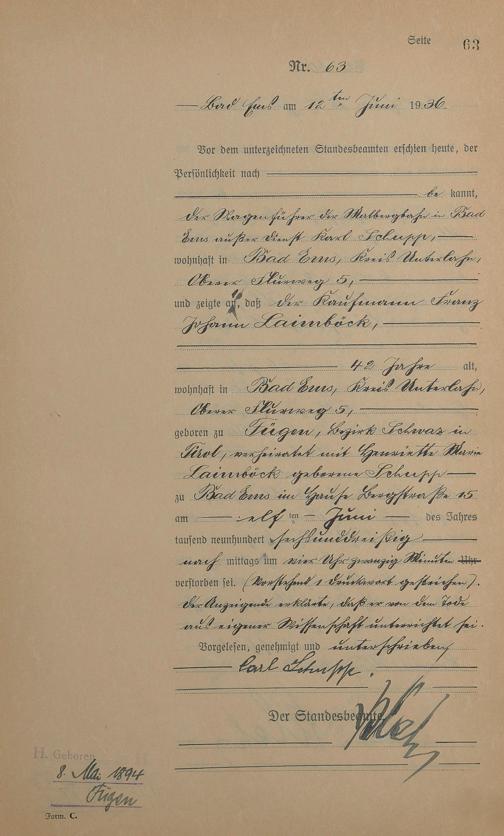 Seite 63
Nr. 63
Bad Ems am 12ten Juni 1936
Vor dem unterzeichneten Standesbeamten erschien heute, der
Persönlichkeit nach
be kannt,
der Wagenführer der Malbergbahn in Bad
Ems außer Dienst Karl Schupp,
wohnhaft in Bad Ems, Kreis Unterlahn,
Oberer Flurweg 5,
und zeigte an, daß der Kaufmann Franz
Johann Laimböck,
42 Jahre alt,
wohnhaft in Bad Ems, Kreis Unterlahn,
Oberer Flurweg 5,
geboren zu Fügen, Bezirk Schwaz in
Tirol, verheiratet mit Henriette Marie
Laimböck geborene Schupp
zu Bad Ems im Hause Bergstraße 15
am elf ten Juni des Jahres
tausend neunhundert sechsunddreißig
nach mittags um vier Uhr zwanzig Minuten Uhr
verstorben sei. (Vorstehend 1 Druckwort gestrichen).
Der Anzeigende erklärte, daß er von dem Tode
aus eigener Wissenschaft unterrichtet sei.
Vorgelesen, genehmigt und unterschrieben
Carl Schupp.
Der Standesbeamte
H. Geboren
8. Mai 1894
Fügen
Form. C.